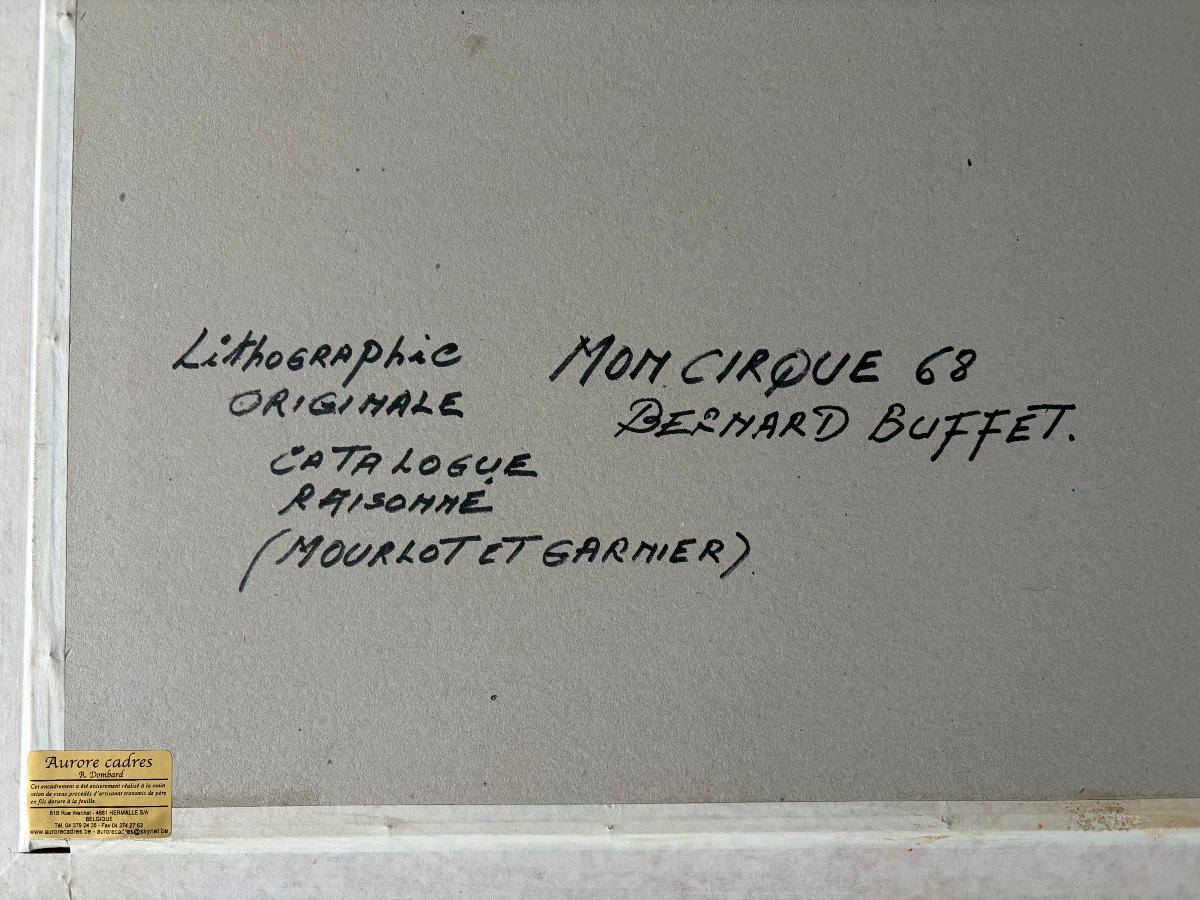 Lithographie
ORIGINALE
CATALOGUE
RAISONNÉ
(MOURLOT ET GARNIER)
MON CIRQUE 68
BERNARD BUFFET.
Aurore cadres
R. Dombard
Cet encadrement a été entierement réalisé à la main
selon de vieux procedés d'artisanat transmis de père
en fils dorure à la feuille.
61B Rue Warihet - 4681 HERMALLE S/A
BELGIQUE
Tél. 04 379 24 36 - Fax 04 374 27 63
www.aurorecadres.be - aurorecadres@skynet.be